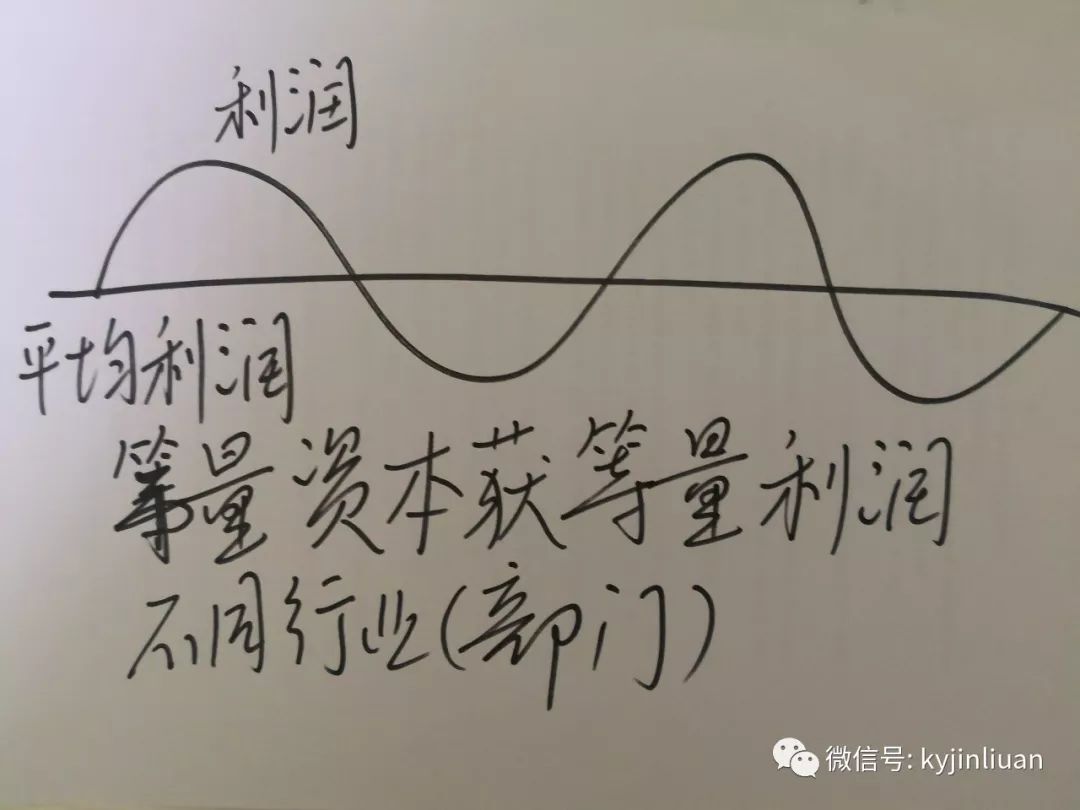 利润
平均利润
等量资本获等量利润
不同行业(部门)
微信号: kyjinliuan